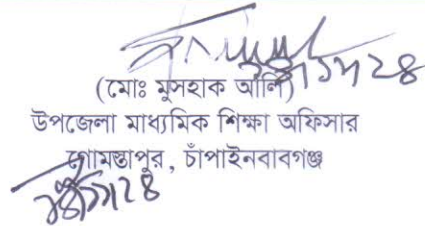 (মোঃ মুসহাক আলি)
উপজেলা মাধ্যমিক শিক্ষা অফিসার
গোমস্তাপুর, চাঁপাইনবাবগঞ্জ